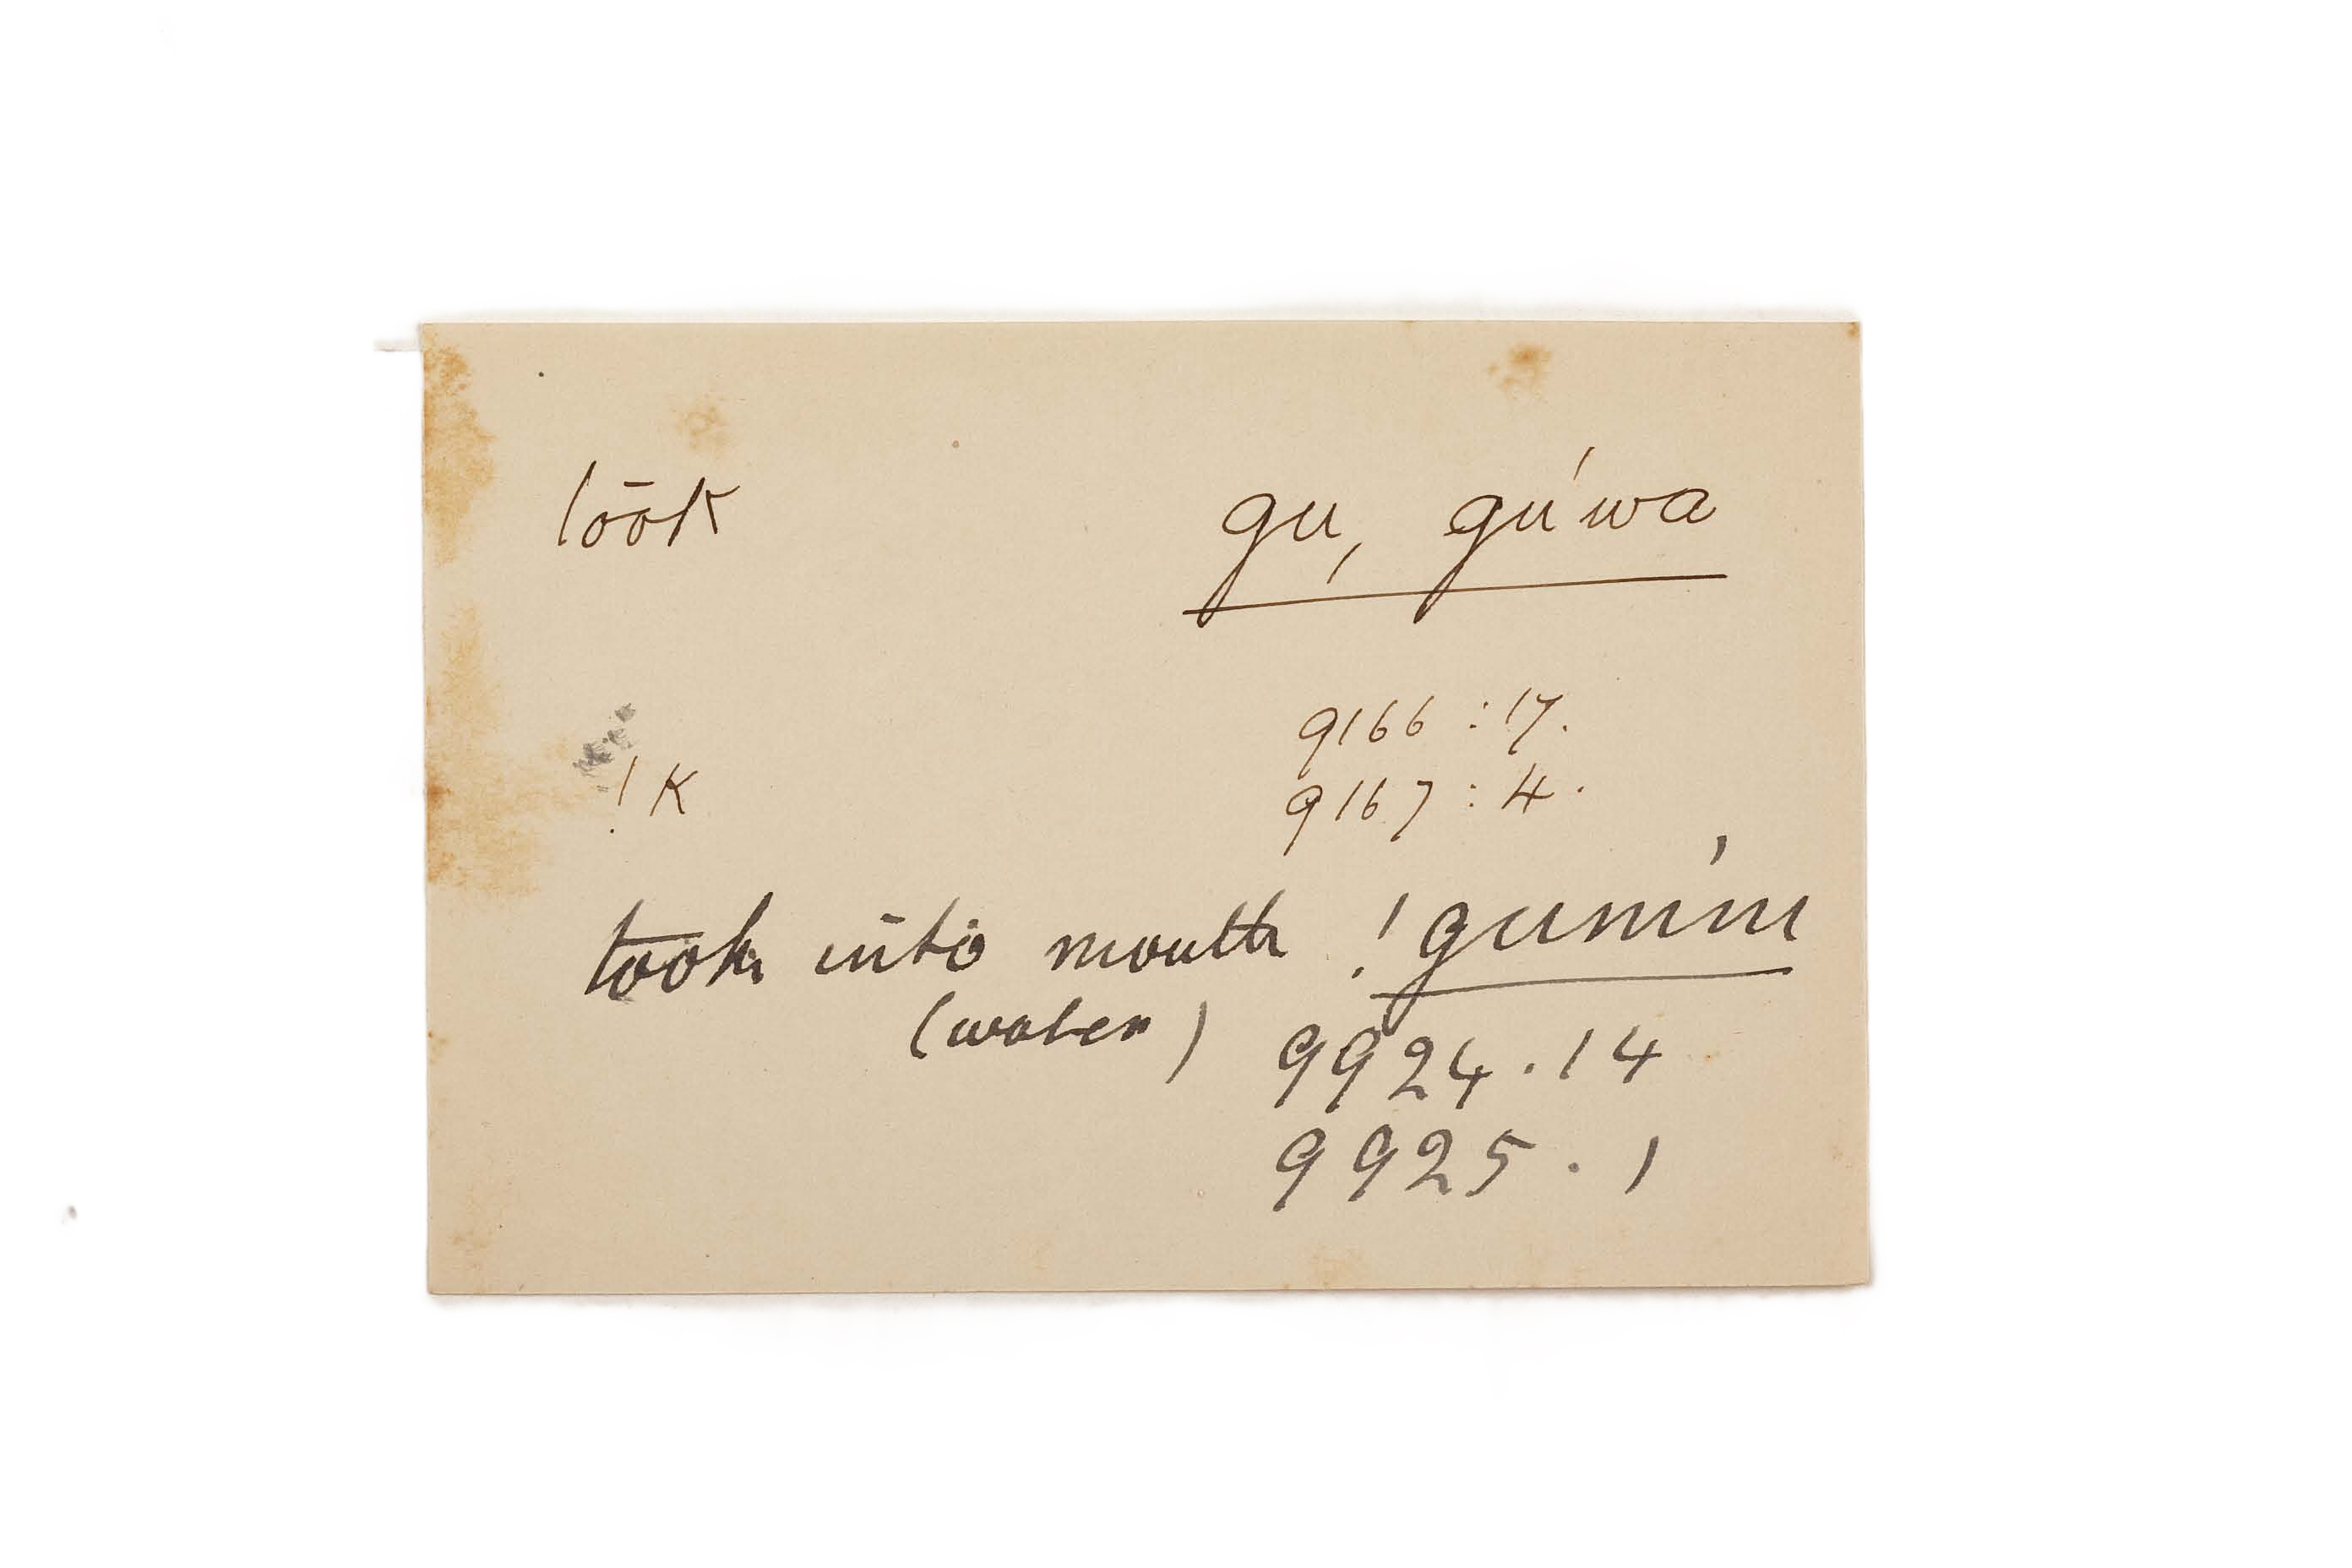 took gu, gú'wa
9166 : 17.
! K 9167 : 4.
took into mouth !gumm
(water) 9924 . 14
9925 . 1